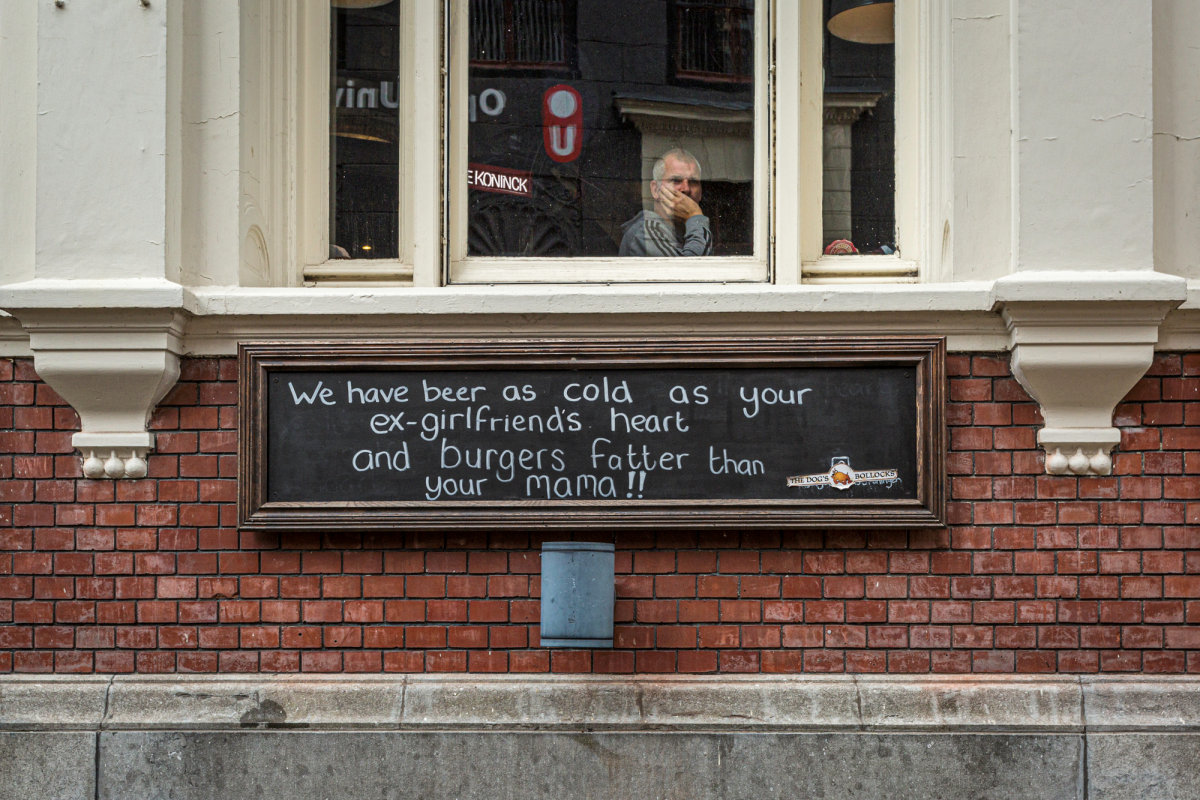 Op Univ
U
E KONINCK
We have beer as cold as your
ex-girlfriend's heart
and burgers fatter than
your mama!!
THE DOG'S BOLLOCKS